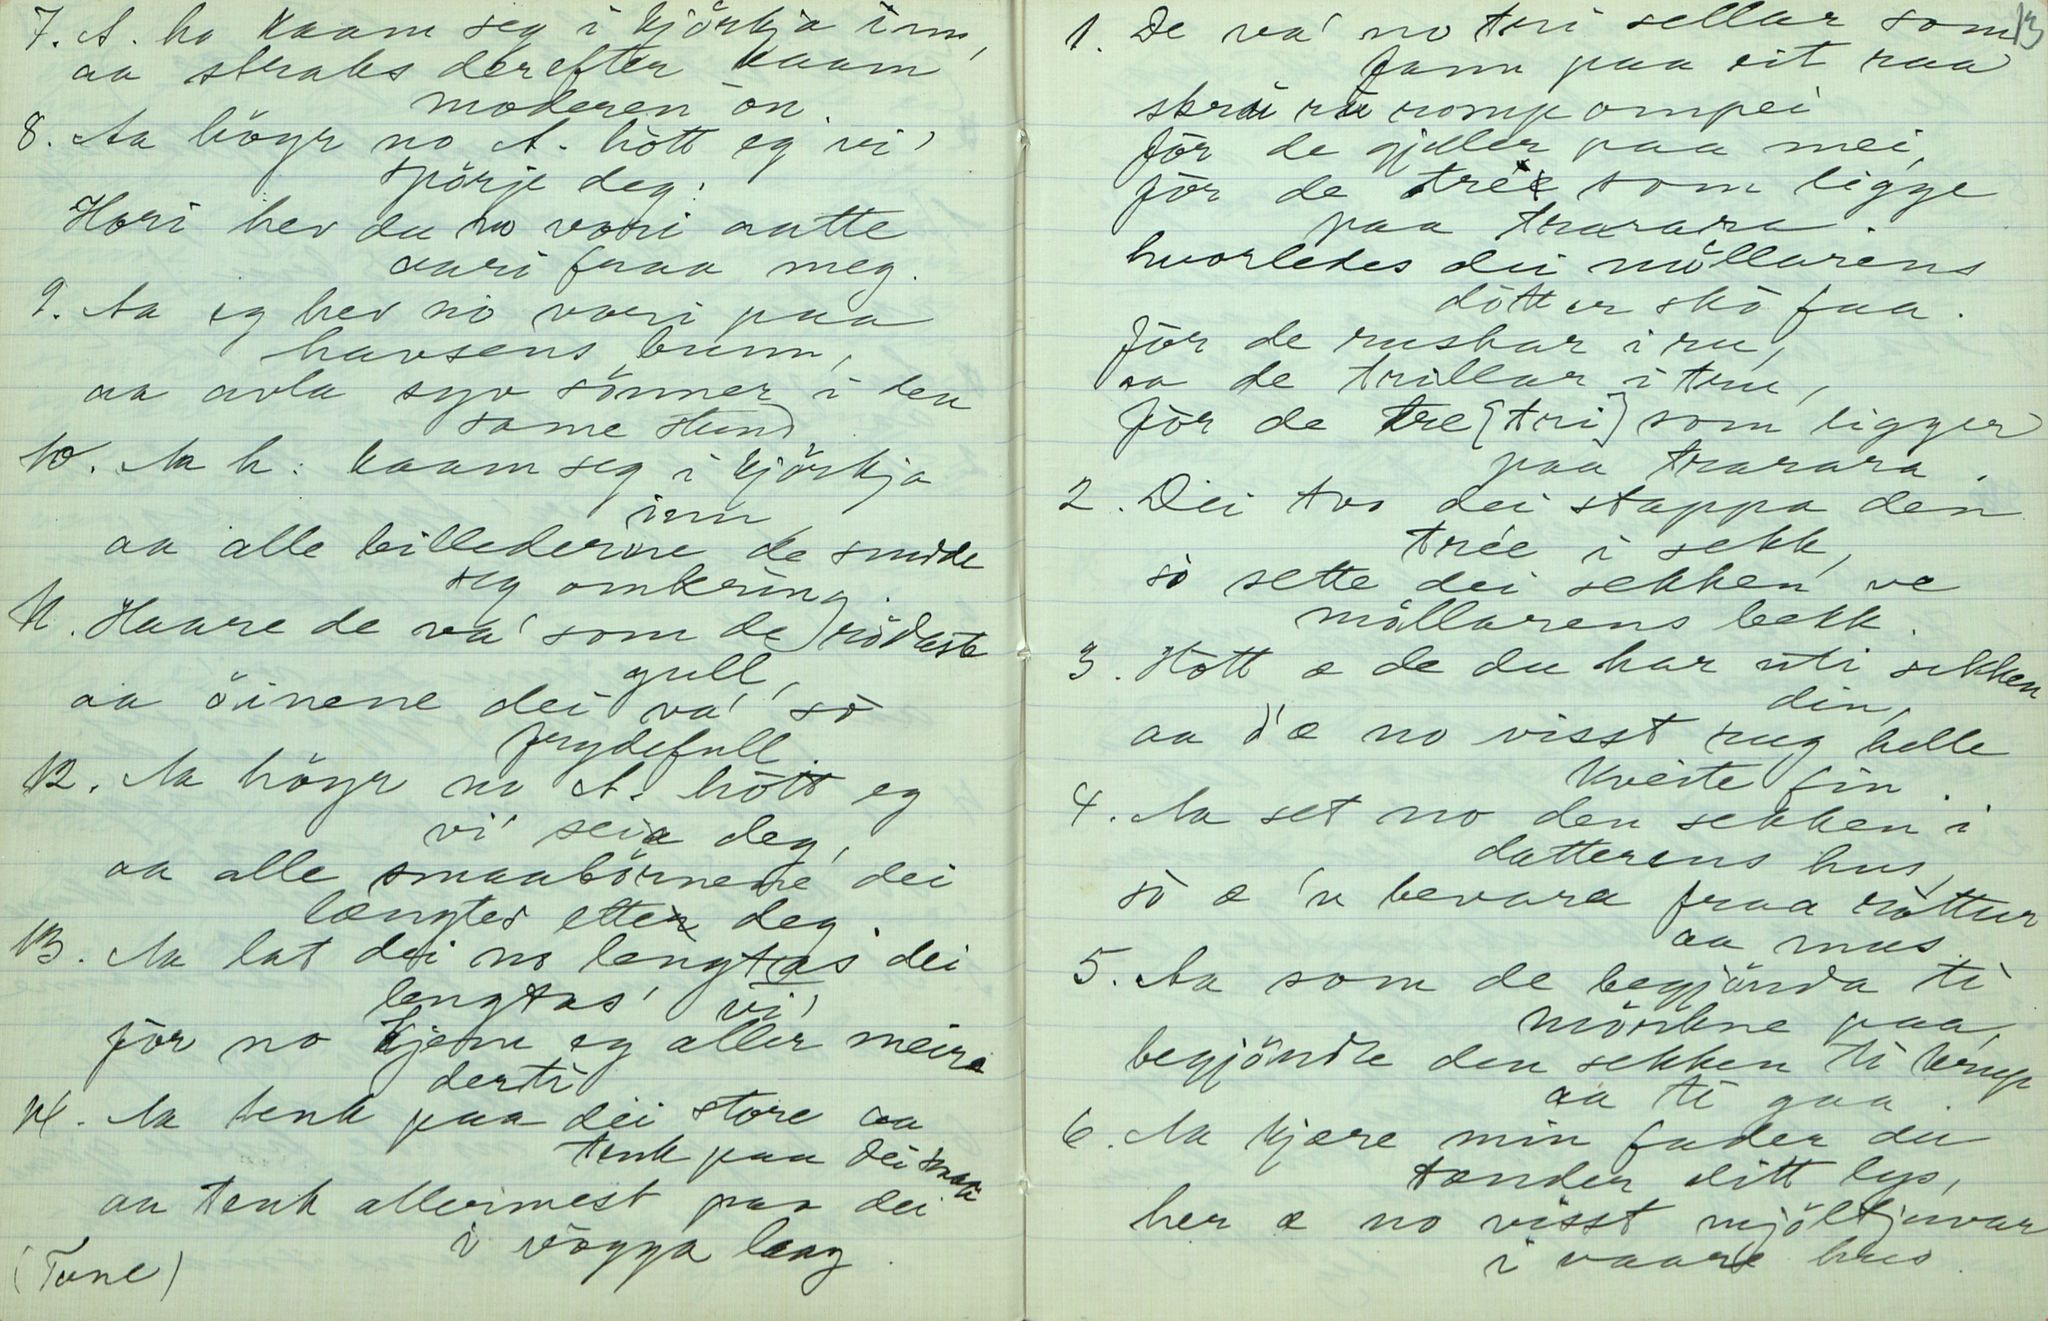 7. A. ho kaam seg i kjörkja inn,
aa straks derefter kaam
moderen ön.
8. Aa höyr no A. hött eg vi'
spörje deg:
Hori hev du no vori aatte
aari fraa meg.
9. Aa eg hev no vori paa
havsens bunn,
aa avla syv sönner i den
same stund
10. Aa h: kaam seg i kjörkja
inn
aa alle billederne de snudde
seg omkring.
11. Haare de va' som de rödaste
gull,
aa öinene dei va' sò
frydefull.
12. Aa höyr no A. hött eg
vi' seia deg,
aa alle smaabörnene dei
længter etter deg.
13. Aa lat dei no lengtas dei
lengtas' vi'
för no kjem eg aller meire
derti
14. Aa tenk paa dei store aa
tenk paa dei smaa
aa tenk allermest paa dei
i vögga laag.
(Tone)
13
1. De va' no tri sellar som
fann paa eit raa
skrü rü romp ompei
för de gjeller paa mei,
för de trée som ligge
paa trarara.
hvorledes dei möllarens
dötter skò faa.
för de ruskar i ru,
aa de trillar i tru,
för de tre [tri] som ligger
paa trarara.
2. Dei tvo dei stappa den
trée i sekk,
sò sette dei sekken ve
möllarens bekk.
3. Hött æ de du har uti sekken
din,
aa d'æ no visst rug helle
kveite fin.
4. Aa set no den sekken i
datterens hus,
sò æ 'n bevara fraa röttur
aa mus.
5. Aa som de begjönda ti
mörkne paa,
begjöndte den sekken ti krup
aa ti gaa.
6. Aa kjære min fader du
tænder ditt lys,
her æ no visst mjöltjuvar
i vaare hus.